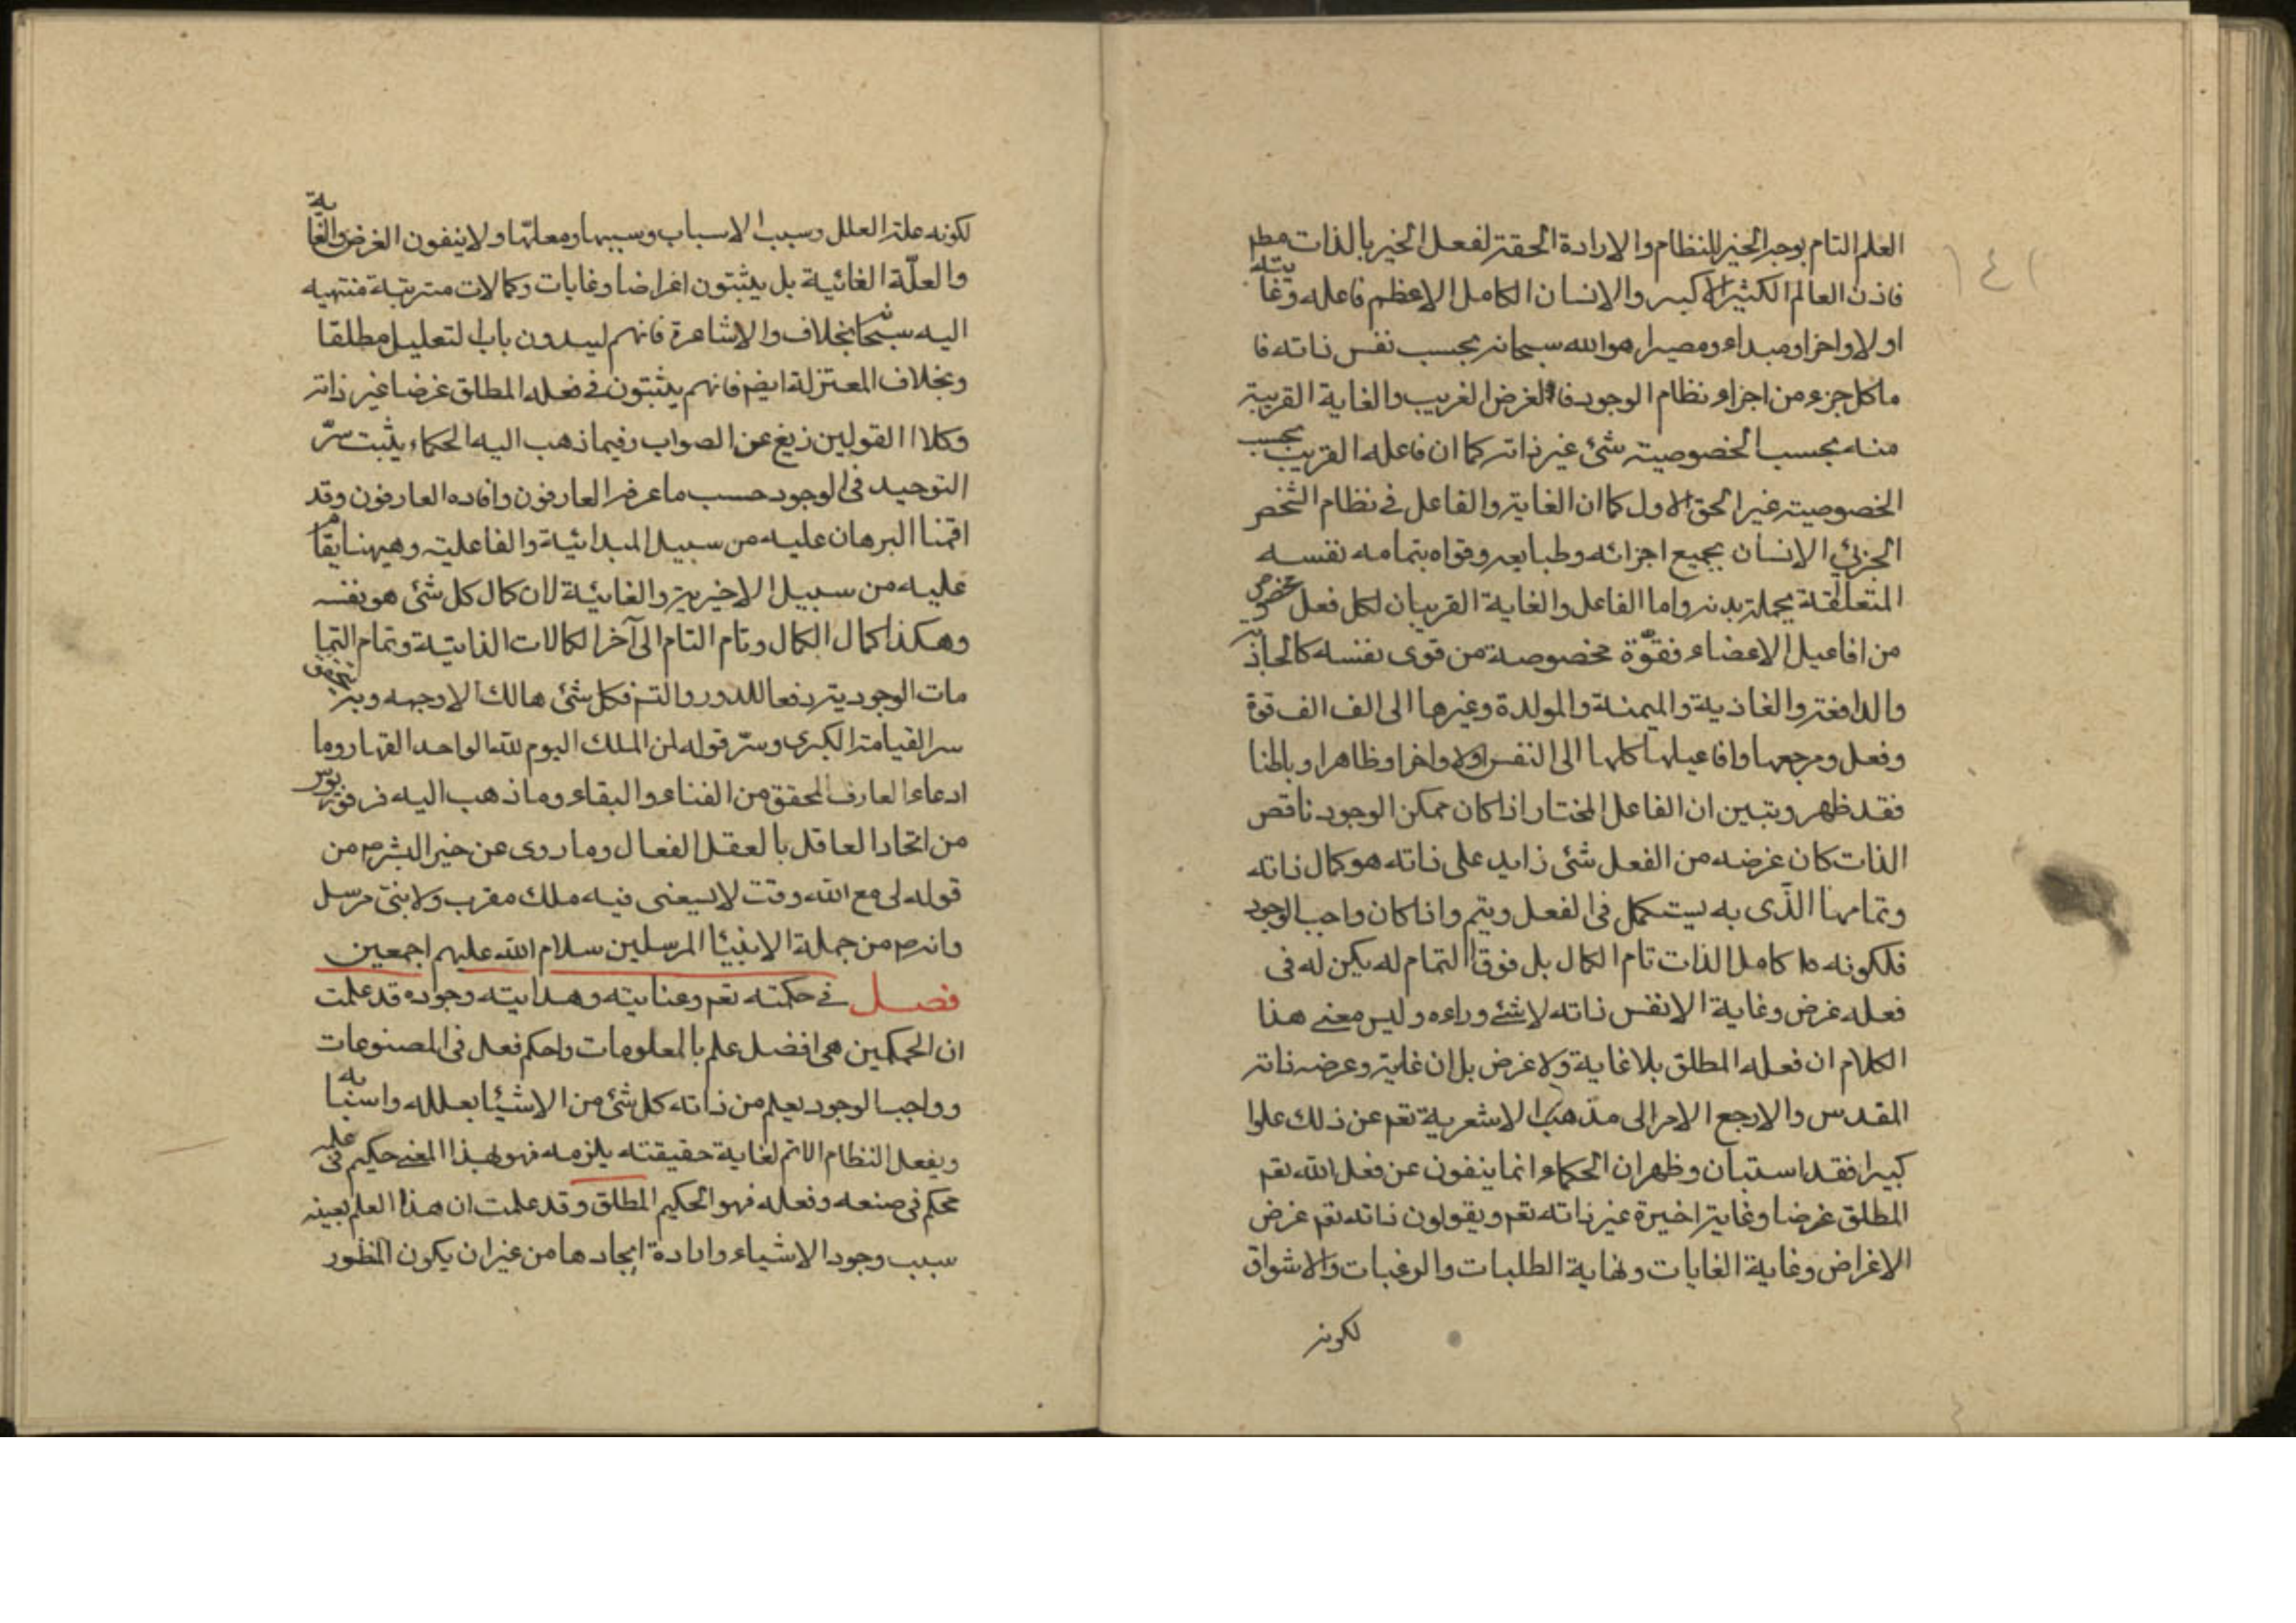 العلم التام بوجه الخير للنظام والارادة الحقة لفعل الخير بالذات مطلقا
فاذن العالم الكثير الاكبر والانسان الكامل الاعظم فاعله وغايته
اولا واخرا ومبداء ومصيرا هو الله سبحانه بحسب نفس ذاته فا
ما كل جزء من اجزاء نظام الوجود فالغرض الغريب والغاية القريبة
منه بحسب الخصوصية شئ غير ذاته كما ان فاعله القريب بحسب
الخصوصية غير الحق الاول كما ان الغاية والفاعل في نظام الشخص
الجزئي الانسان بجميع اجزائه وطبايعه وقواه بتمامه نفسه
المتعلقة بجملة بدنه واما الفاعل والغاية القريبان لكل فعل مخصوص
من افاعيل الاعضاء فقوّة مخصوصة من قوى نفسه كالجاذبة
والدافعة والغاذية والمنمية والمولدة وغيرها الى الف الف قوة
وفعل ومرجعها وافاعيلها كلها الى النفس اولا واخرا وظاهرا وباطنا
فقد ظهر وتبين ان الفاعل المختار اذا كان ممكن الوجود ناقص
الذات كان غرضه من الفعل شئ زايد على ذاته هو كمال ذاته
وتمامها الذّى به يستكمل فى الفعل ويتم واذا كان واجب الوجود
فلكونه كامل الذات تام الكمال بل فوق التمام لم يكن له فى
فعله غرض وغاية الا نفس ذاته لا شئ وراءه وليس معنى هذا
الكلام ان فعله المطلق بلا غاية ولا غرض بل ان غايته وغرضه ذاته
المقدس والا رجع الامر الى مذهب الاشعرية تعم عن ذلك علوا
كبيرا فقد استبان وظهر ان الحكماء انما ينفون عن فعل الله تعم
المطلق غرضا وغاية اخيرة غير ذاته تعم ويقولون ذاته تعم غرض
الاغراض وغاية الغايات ونهاية الطلبات والرغبات والاشواق
لكونه
١٤١
لكونه علة العلل وسبب الاسباب ومسببها ومعللها ولا ينفون الغرض والغاية
والعلّة الغائية بل يثبتون اغراضا وغايات وكمالات مترتبة منتهيه
اليه سبحانه بخلاف والاشاعرة فانهم ليسدون باب التعليل مطلقا
وبخلاف المعتزلة ايضم فانهم يثبتون في فعله المطلق غرضا غير ذاته
وكلا القولين زيغ عن الصواب وفيما ذهب اليه الحكماء يثبت سرّ
التوحيد فى الوجود حسب ما عرفه العارفون وافاده العارفون وقد
اقمنا البرهان عليه من سبيل المبدائية والفاعلية وهيهنا يقام
عليه من سبيل الاخيرية والغائية لان كمال كل شئ هو نفسه
وهكذا كمال الكمال وتام التام الى آخر الكمالات الذاتية وتمام التما
مات الوجودية دفعا للدور والتسم فكل شئ هالك الا وجهه وبه
سر القيامة الكبرى وسرّ قوله لمن الملك اليوم لله الواحد القهار وما
ادعاه العارف المحقق من الفناء والبقاء وما ذهب اليه فرفوريوس
من اتحاد العاقل بالعقل الفعال وما روى عن خير البشر ص من
قوله لى مع الله وقت لا يسعنى فيه ملك مقرب ولا نبى مرسل
وانه ص من جملة الانبياء المرسلين سلام الله عليهم اجمعين
فصل في حكمته تعم وعنايته وهدايته وجوده قد علمت
ان الحكمة هى افضل علم بالمعلومات واحكم فعل فى المصنوعات
وواجب الوجود يعلم من ذاته كل شئ من الاشياء بعلله واسبابه
ويفعل النظام الاتم لغاية حقيقته يلزمه فهو بهذا المعنى حكيم فى علمه
محكم فى صنعه وفعله فهو الحكيم المطلق وقد علمت ان هذا العلم بعينه
سبب وجود الاشياء وارادة ايجادها من غير ان يكون المنظور